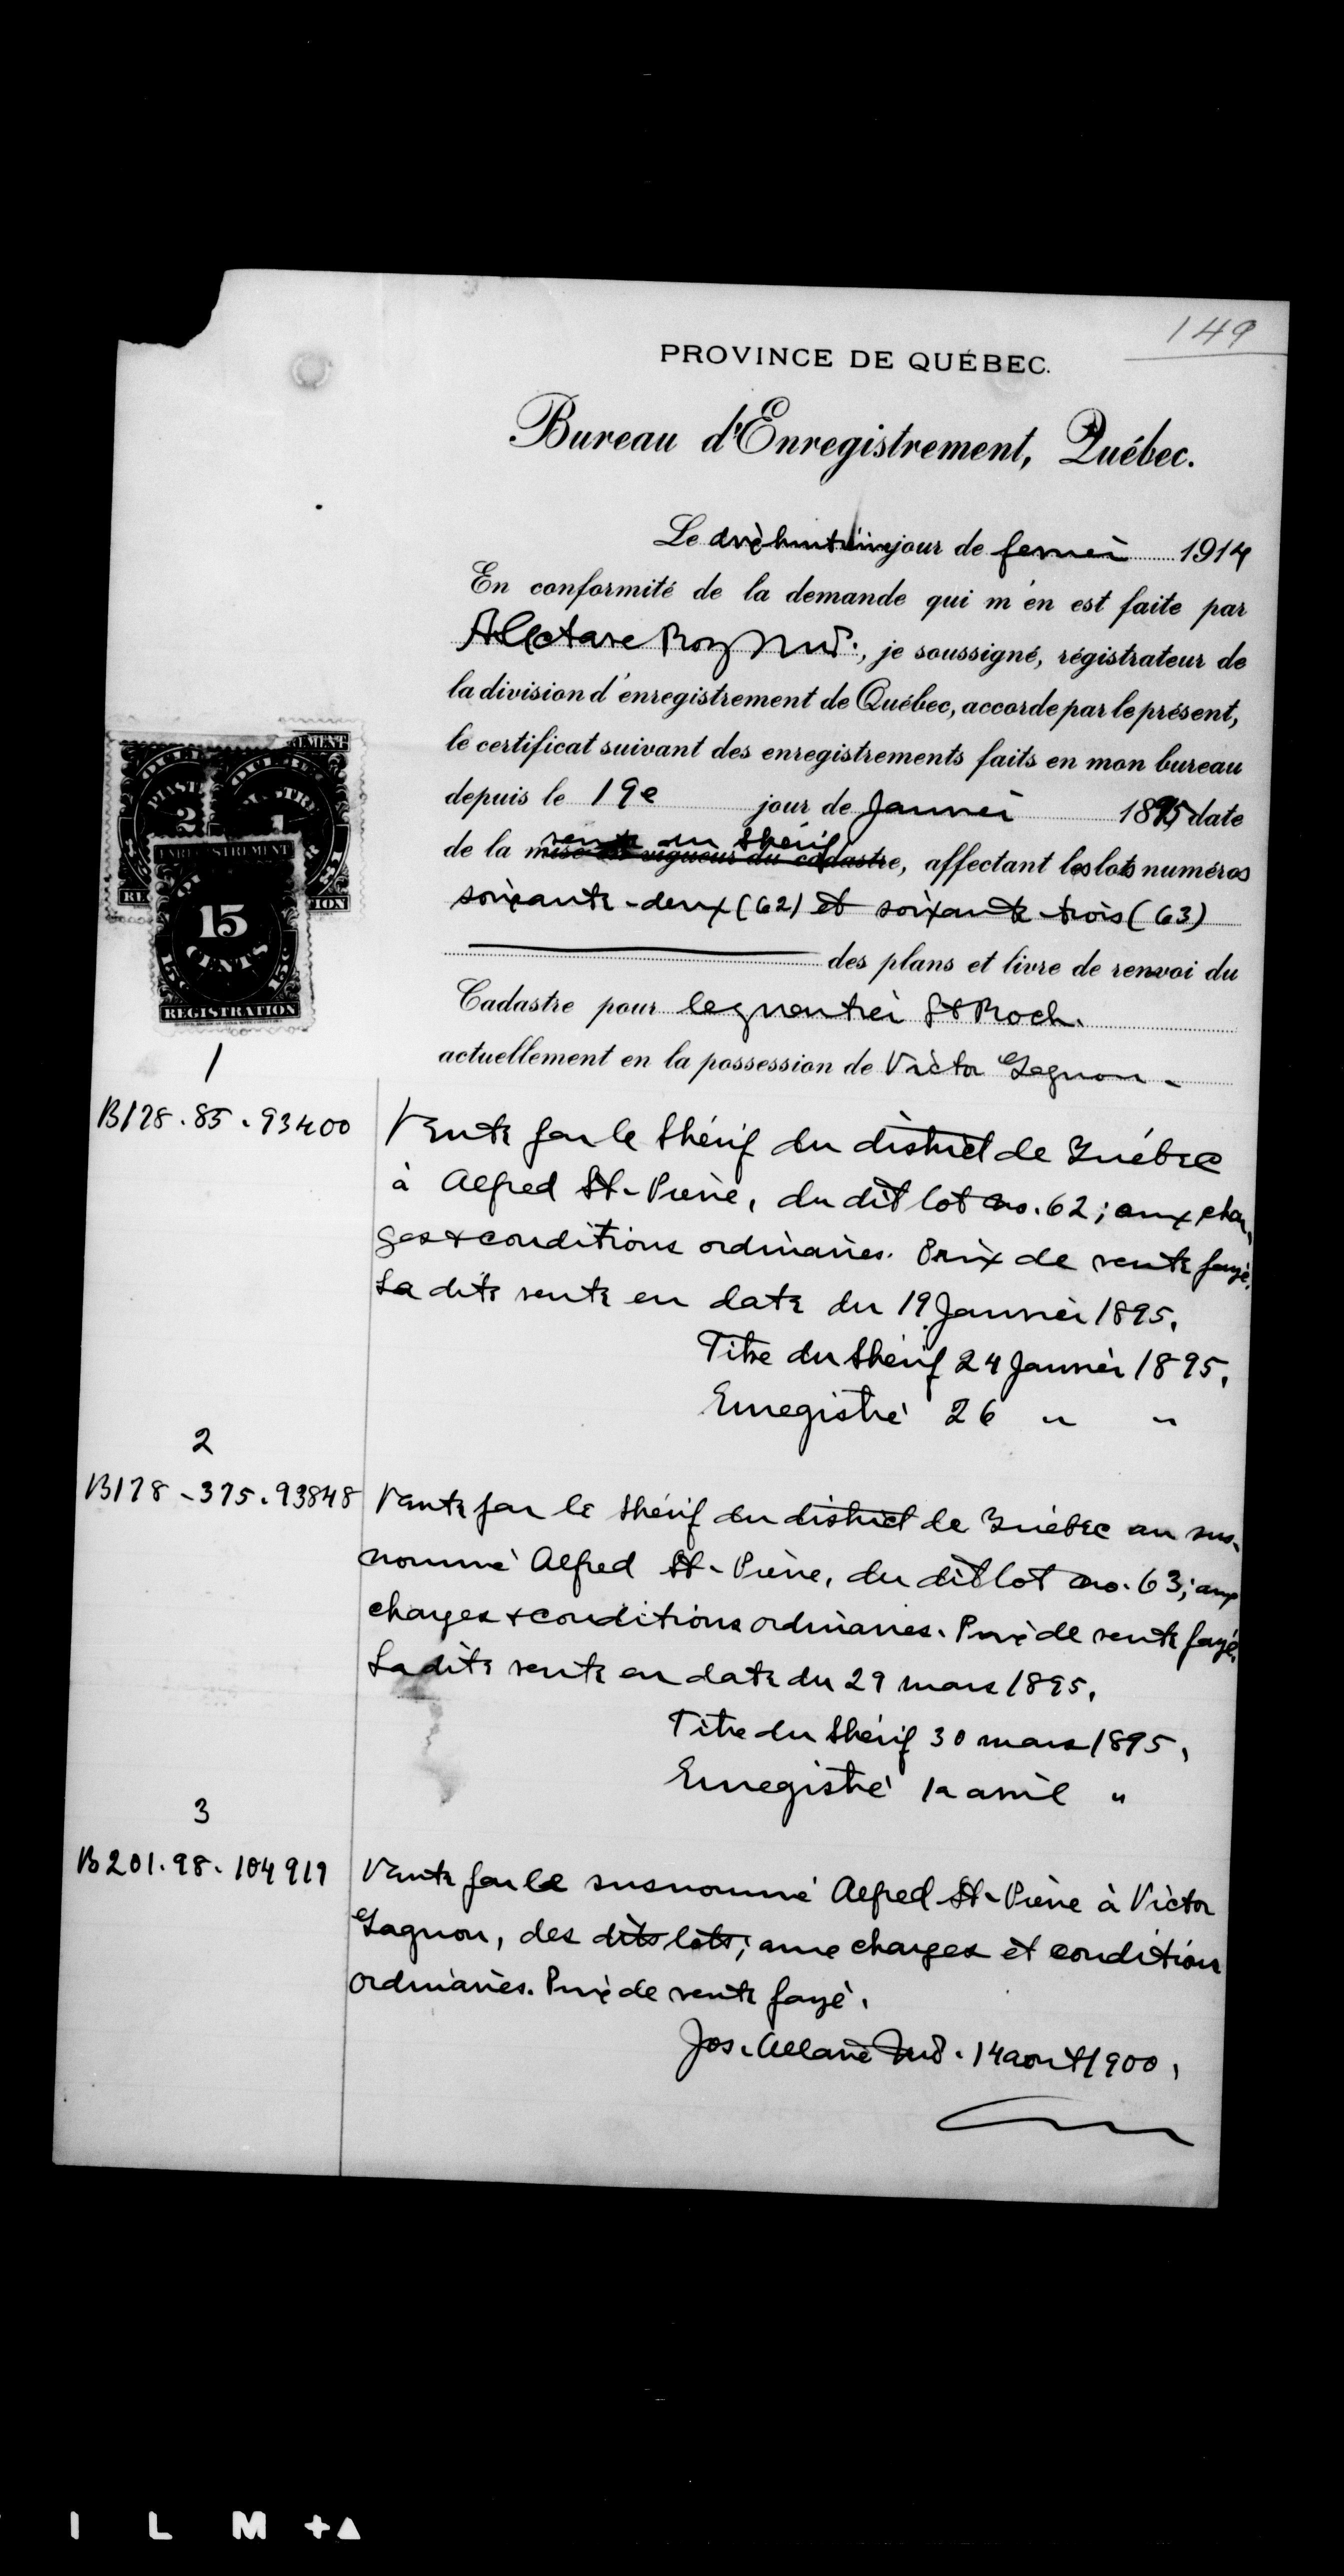 149
PROVINCE DE QUÉBEC.
Bureau d'Enregistrement, Québec.
Le dix huitième jour de fevrier 1914
En conformité de la demande qui m'en est faite par
Roy, je soussigné, régistrateur de
la division d'enregistrement de Québec, accorde par le présent,
le certificat suivant des enregistrements faits en mon bureau
depuis le 19e jour de Janvier 1895, date
vente du Shérif
de la mise en vigueur du cadastre, affectant les lots numéros
soixante-deux (62) et soixante-trois (63)
des plans et livre de renvoi du
Cadastre pour le quartier St Roch.
actuellement en la possession de Victor Gagnon.
15
CENTS
REGISTRATION
1
B178.85.93400
Vente par le Shérif du district de Québec
à Alfred St-Pierre, du dit lot no. 62; aux char-
ges & conditions ordinaires. Prix de vente payé.
La dite vente en date du 19 Janvier 1895.
Titre du Shérif 24 Janvier 1895.
Enregistré 26 " "
2
B178-375.93848
Vente par le Shérif du district de Québec au sus-
nommé Alfred St-Pierre, du dit lot no. 63; aux
charges & conditions ordinaires. Prix de vente payé.
La dite vente en date du 29 mars 1895.
Titre du Shérif 30 mars 1895.
Enregistré 1er avril "
3
B201.98.104919
Vente par le susnommé Alfred St-Pierre à Victor
Gagnon, des dits lots; aux charges et conditions
ordinaires. Prix de vente payé.
Jos. Allaire 14 aout 1900.
I L M